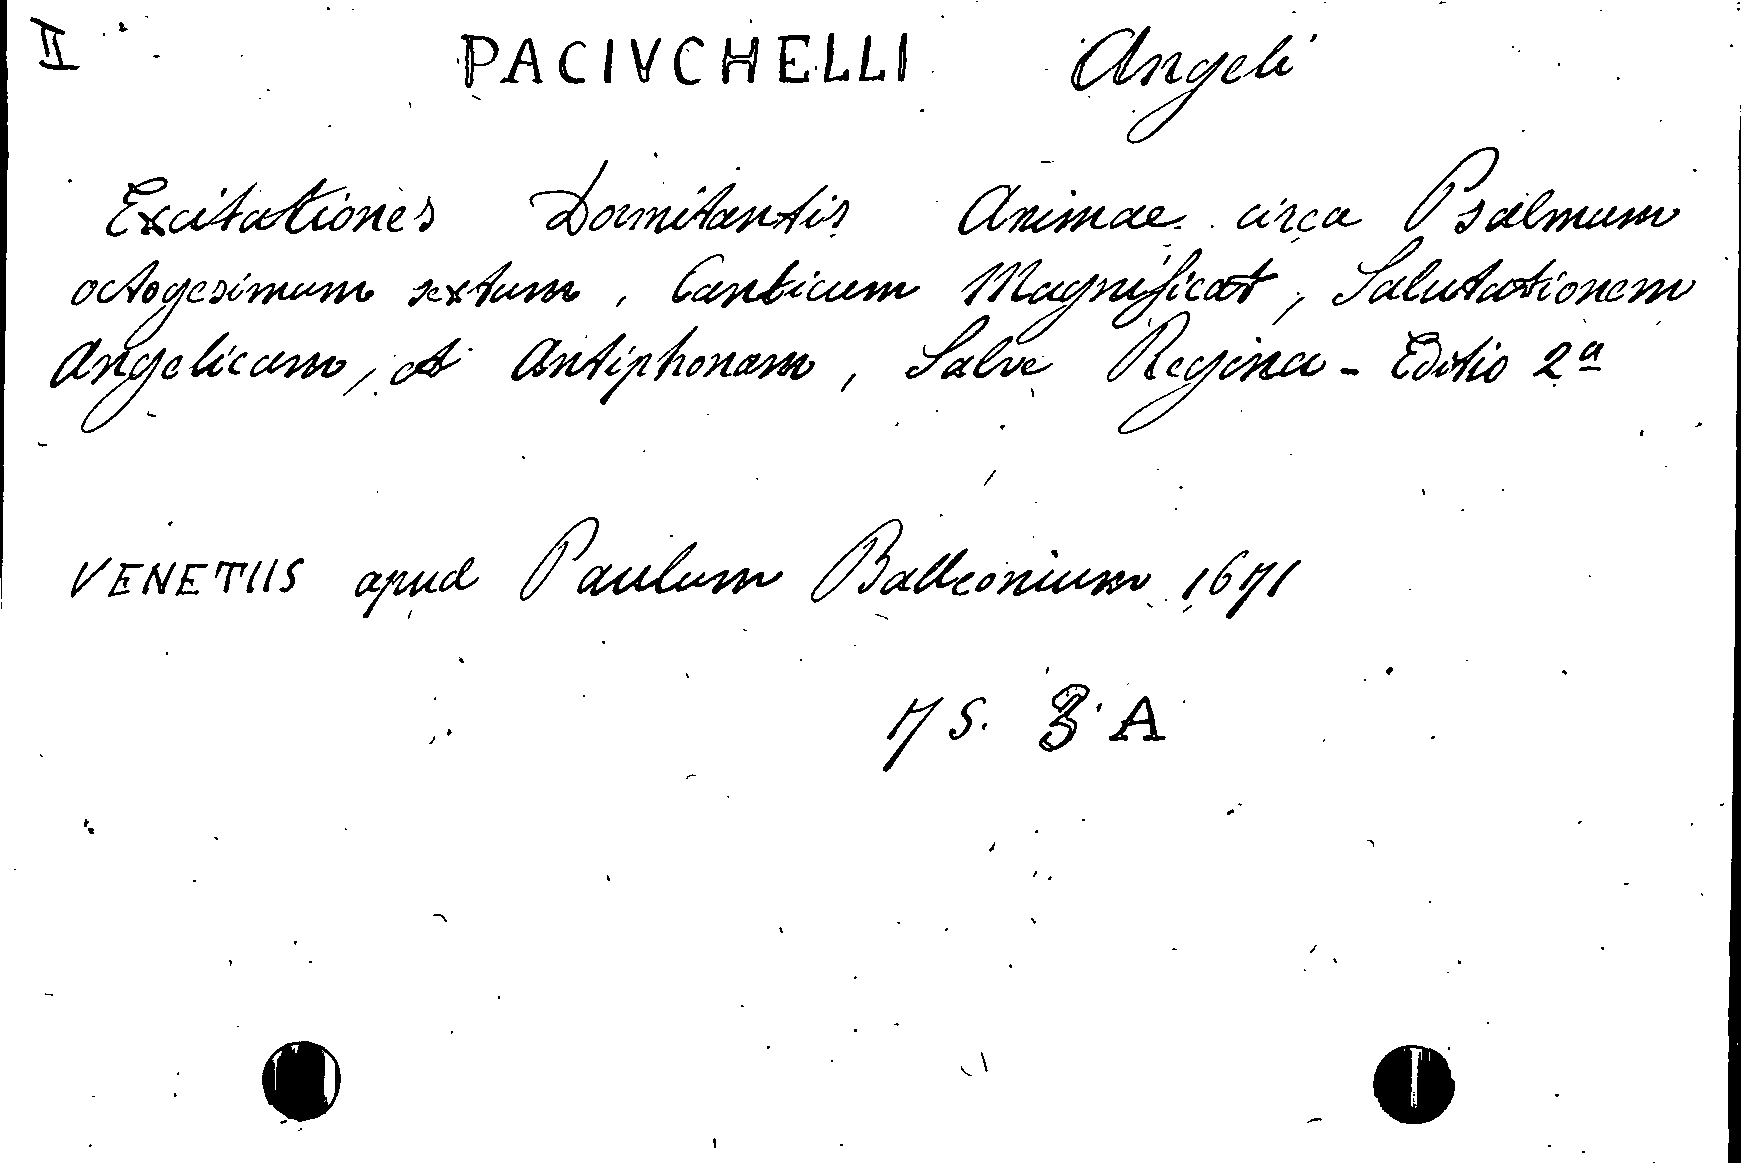 II PACIVCHELLI Angeli
Excitationes Dormitantis Animae circa Psalmum
octogesimum sextum, Canticum Magnificat, Salutationem
Angelicam, et Antiphonam, Salve Regina - Editio 2ª
VENETIIS apud Paulum Balleonium 1671
7 S. 3 A